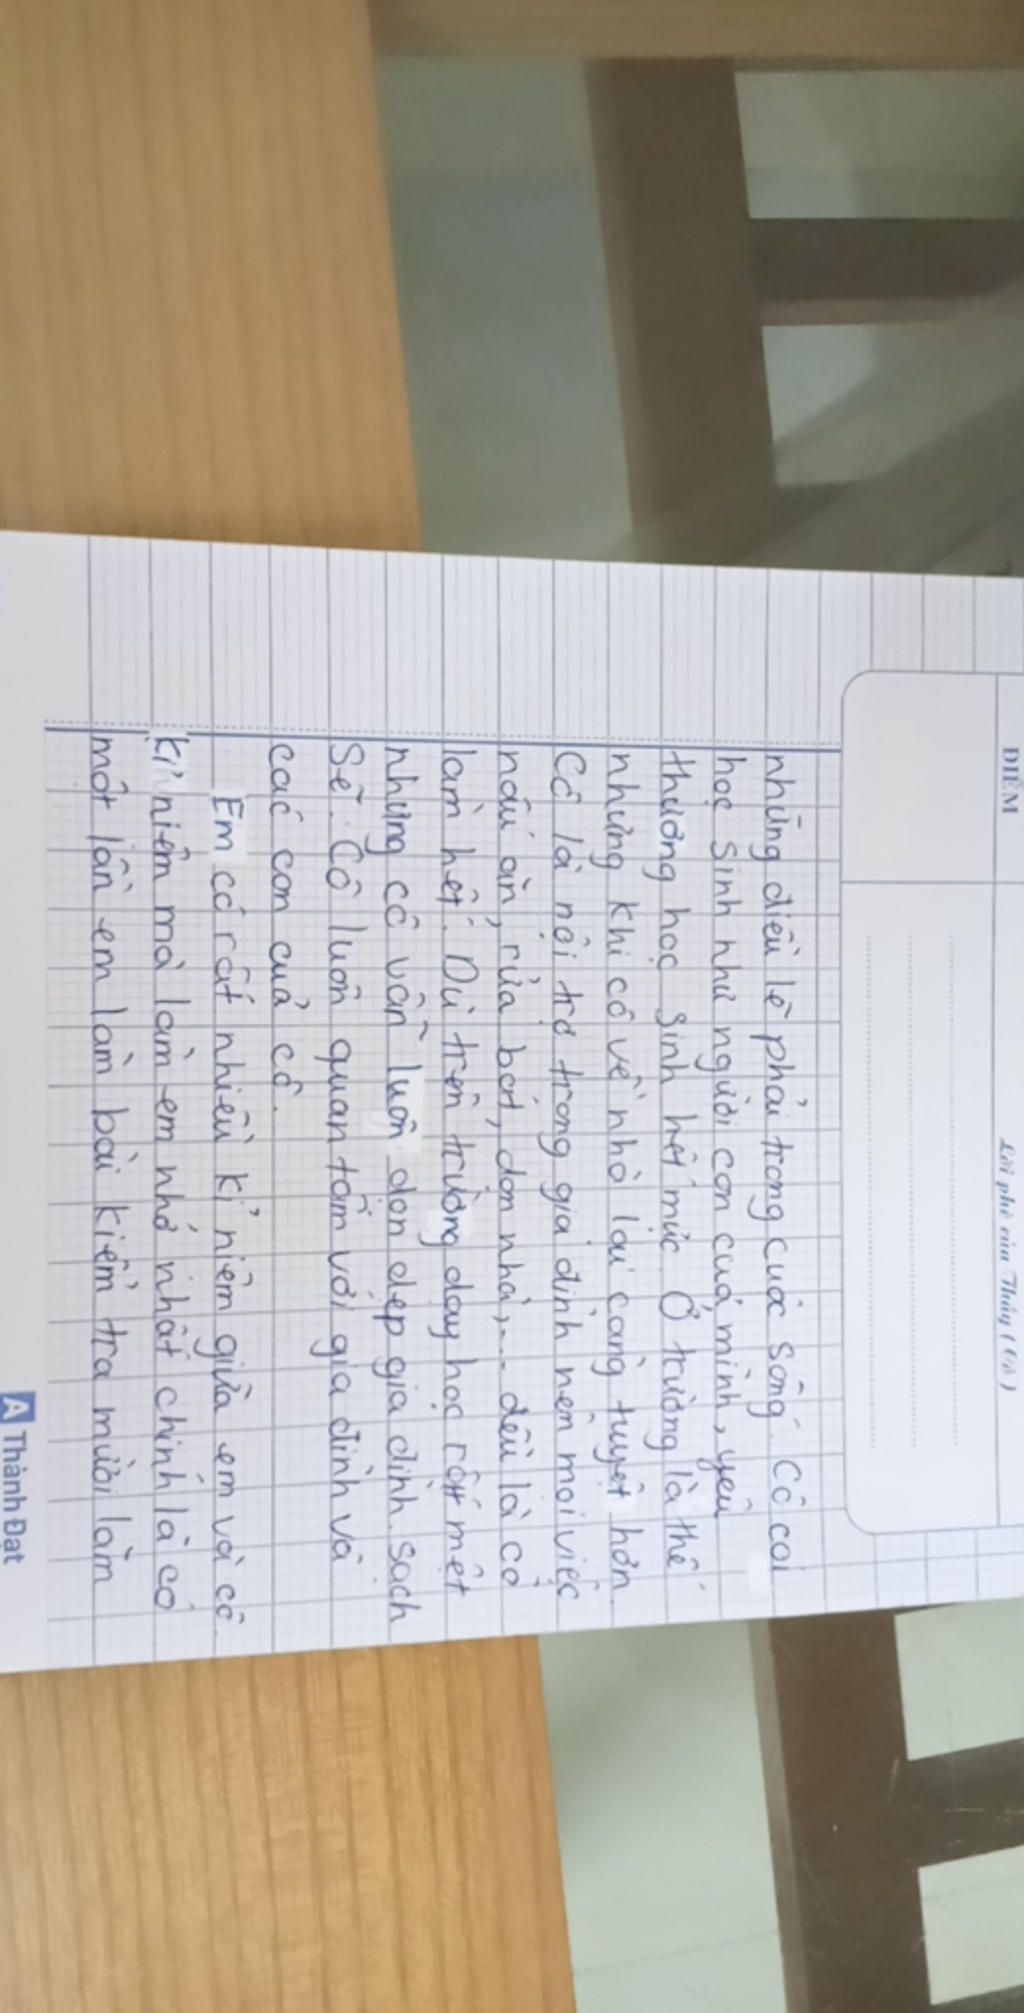 ĐIỂM
Lời phê của Thầy (Cô)
những điều lẽ phải trong cuộc sống. Cô coi
học sinh như người con của mình, yêu
thương học sinh hết mực. Ở trường là thế
nhưng khi cô về nhà lại càng tuyệt hơn.
Cô là nội trợ trong gia đình nên mọi việc
nấu ăn, rửa bát, dọn nhà,... đều là cô
làm hết. Dù trên trường dạy học rất mệt
nhưng cô vẫn luôn dọn dẹp gia đình sạch
sẽ. Cô luôn quan tâm với gia đình và
các con của cô.
Em có rất nhiều kỉ niệm giữa em và cô.
kỉ niệm mà làm em nhớ nhất chính là có
một lần em làm bài kiểm tra mười lăm
A Thành Đạt